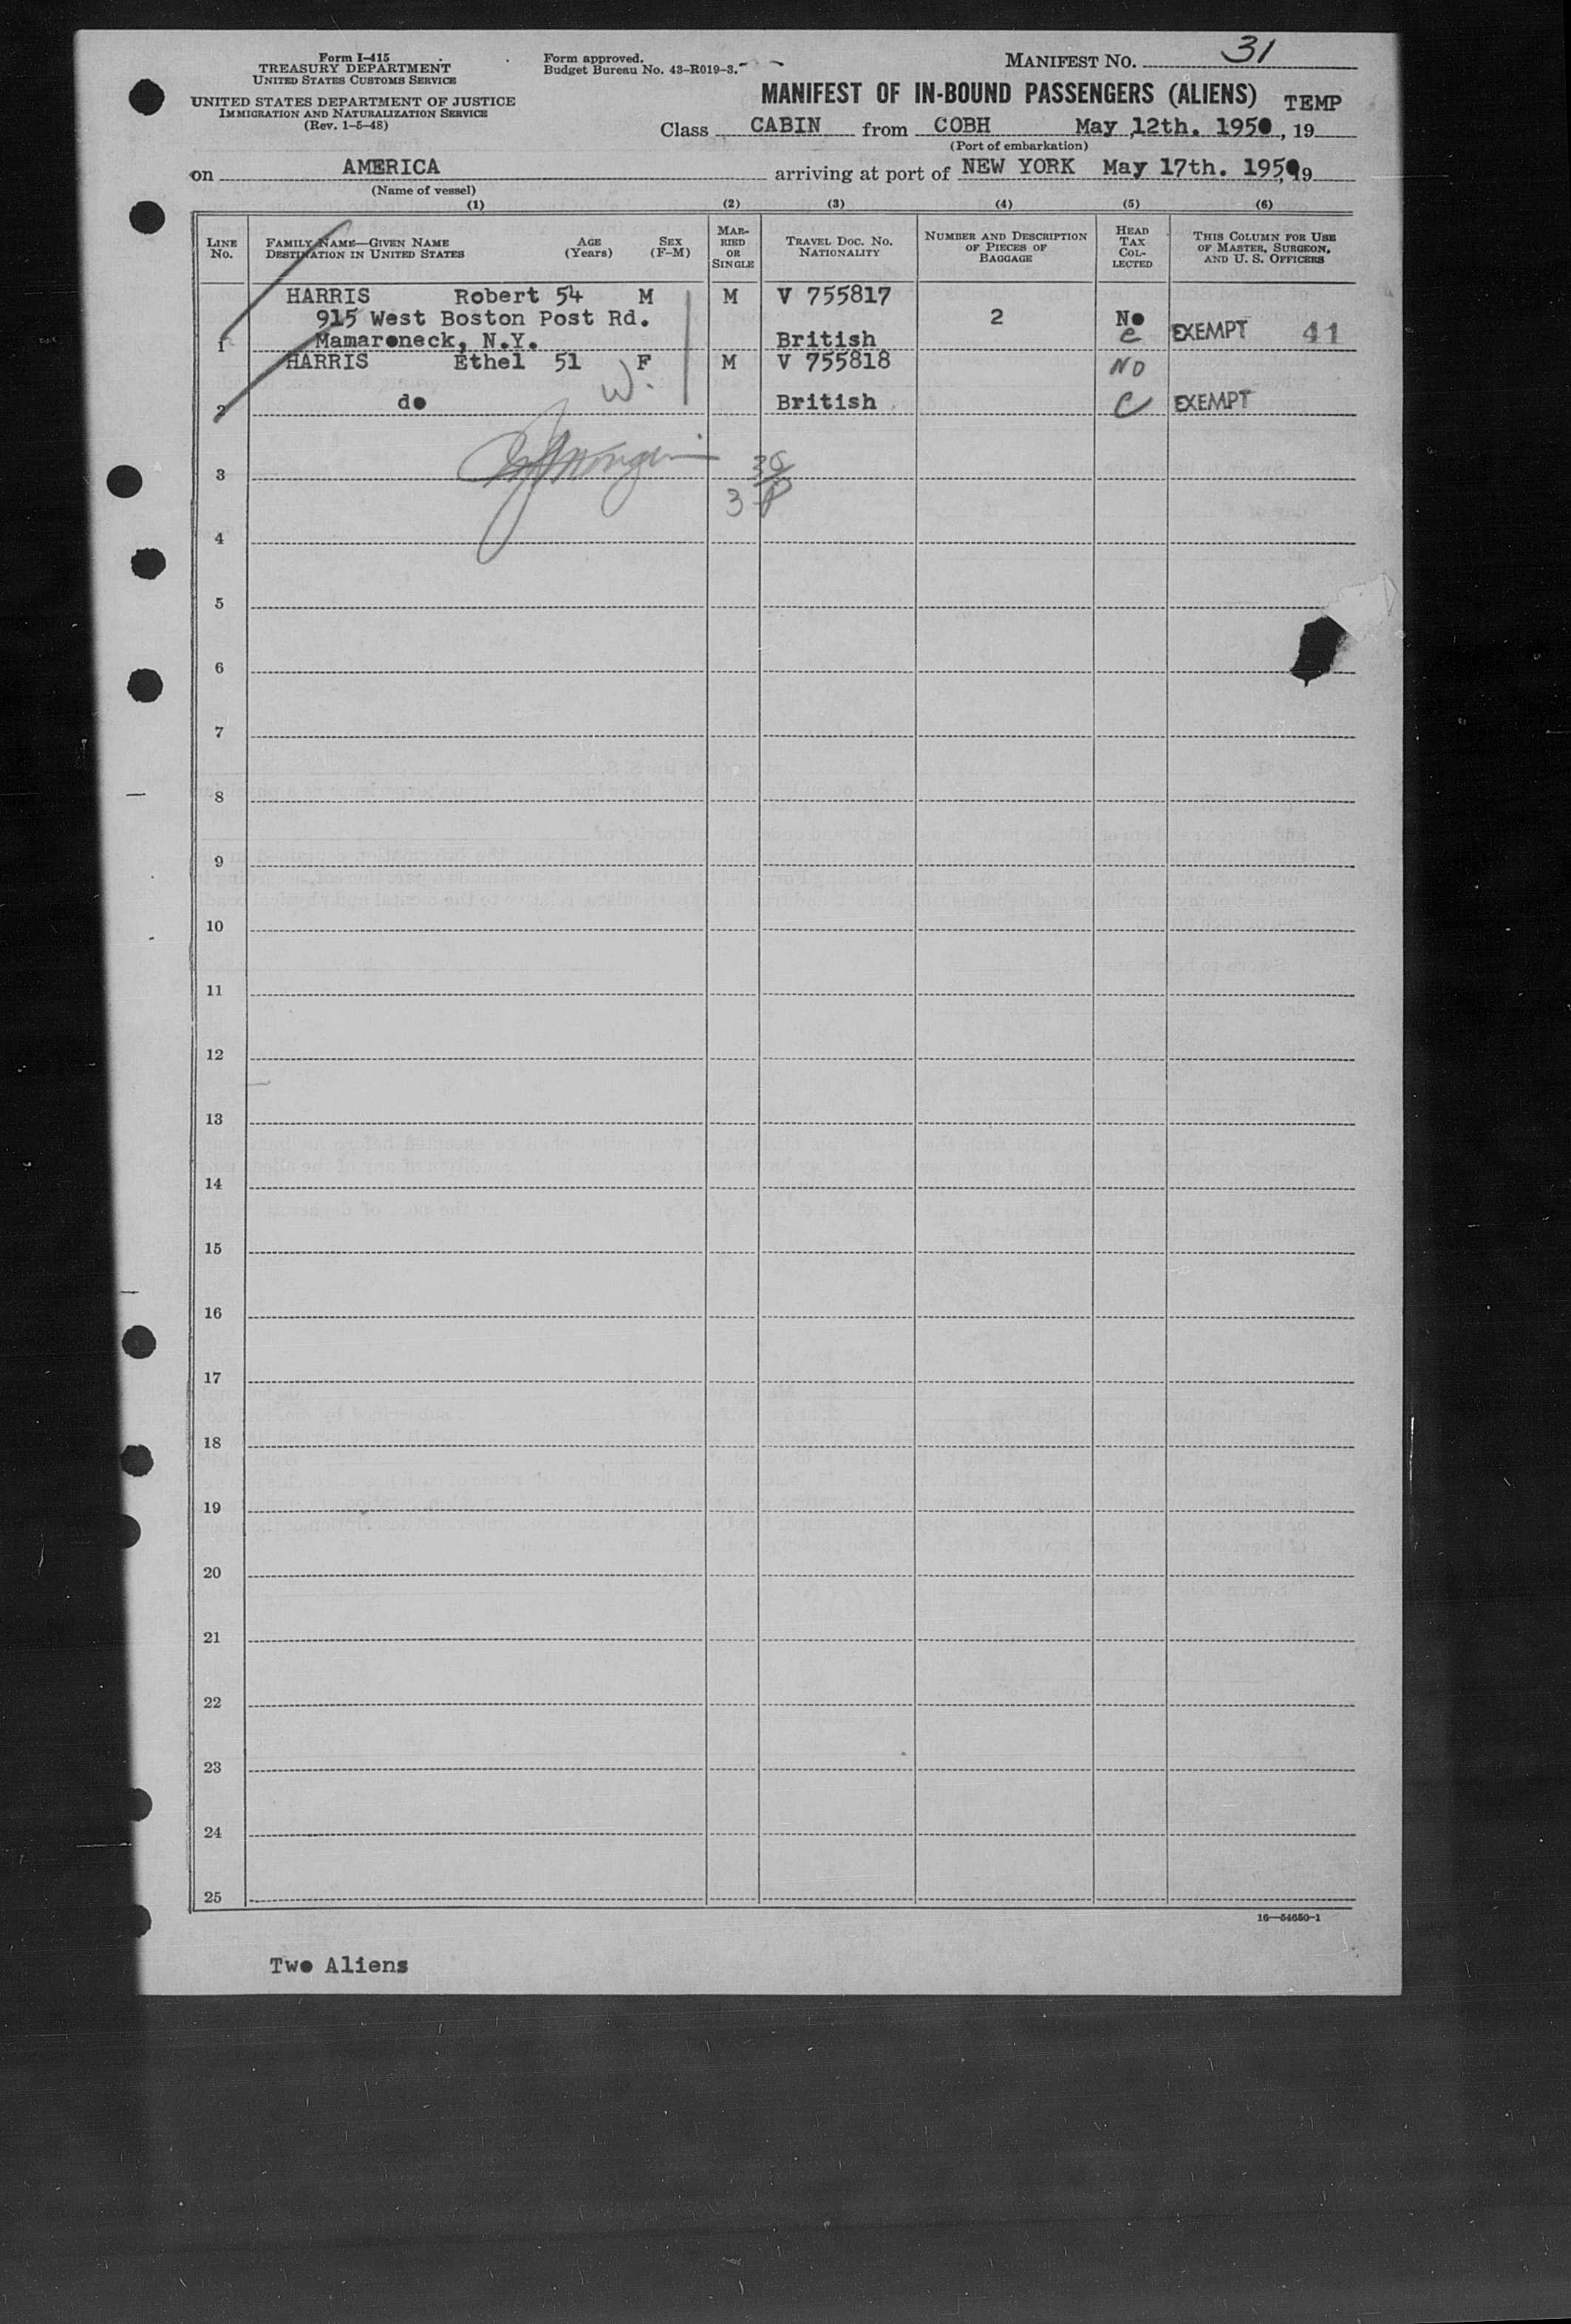 Form I-415
TREASURY DEPARTMENT
UNITED STATES CUSTOMS SERVICE
UNITED STATES DEPARTMENT OF JUSTICE
IMMIGRATION AND NATURALIZATION SERVICE
(Rev. 1-5-48)
Form approved.
Budget Bureau No. 43-R019-3.
MANIFEST NO. 31
MANIFEST OF IN-BOUND PASSENGERS (ALIENS) TEMP
Class CABIN from COBH May 12th. 1950, 19
(Port of embarkation)
on AMERICA arriving at port of NEW YORK May 17th. 1950, 19
(Name of vessel)
(1) (2) (3) (4) (5) (6)
LINE No.
FAMILY NAME—GIVEN NAME
DESTINATION IN UNITED STATES
AGE (Years)
SEX (F-M)
MARRIED OR SINGLE
TRAVEL DOC. NO. NATIONALITY
NUMBER AND DESCRIPTION OF PIECES OF BAGGAGE
HEAD TAX COLLECTED
THIS COLUMN FOR USE OF MASTER, SURGEON, AND U. S. OFFICERS
HARRIS Robert 54 M M V 755817
915 West Boston Post Rd. 2 No
1 Mamaroneck, N.Y. British C EXEMPT 41
HARRIS Ethel 51 F M V 755818 NO
W.
2 do British C EXEMPT
3
4
5
6
7
8
9
10
11
12
13
14
15
16
17
18
19
20
21
22
23
24
25
16—54650-1
Two Aliens